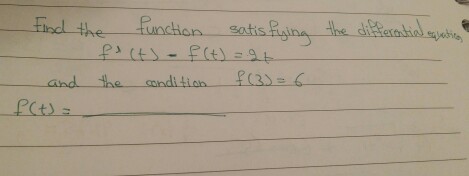 Find the function satisfying the differential equation
f'(t) - f(t) = 2t
and the condition f(3) = 6
f(t) =